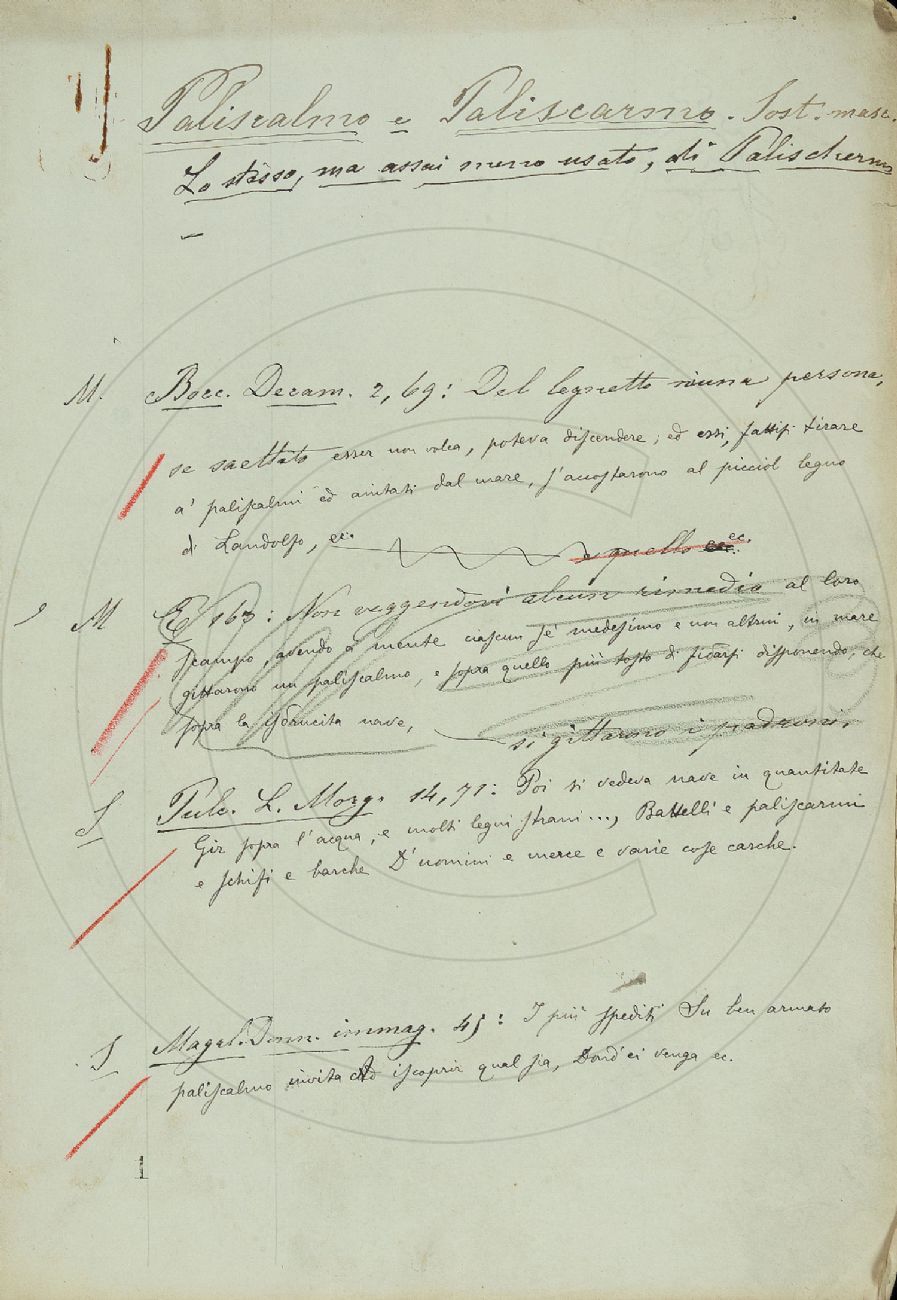 Paliscalmo e Paliscarmo. Sost. masc.
Lo stesso, ma assai meno usato, di Palischermo
–
M. Bocc. Decam. 2, 69: Del legnetto niuna persona,
se saettato esser non volea, poteva discendere; ed essi, fattisi tirare
a' paliscalmi ed aiutati dal mare, s'accostarono al picciol legno
di Landolfo, ec. e quello ec.
M E 163: Non veggendovi alcun rimedio al loro
scampo, avendo a mente ciascun sè medesimo e non altrui, in mare
gittarono un paliscalmo, e sopra quello più tosto di fidarsi disponendo, che
sopra la sdrucita nave, si gittarono i padroni.
S Pulc. L. Morg. 14, 71: Poi si vedeva nave in quantitate
Gir sopra l'acqua, e molti legni strani..., Battelli e paliscarmi
e schifi e barche D'uomini e merce e varie cose carche.
S Magal. Donn. immag. 45: I più spediti Su ben armato
paliscalmo invita Ad iscoprir qual sia, Dond'ei venga ec.
1